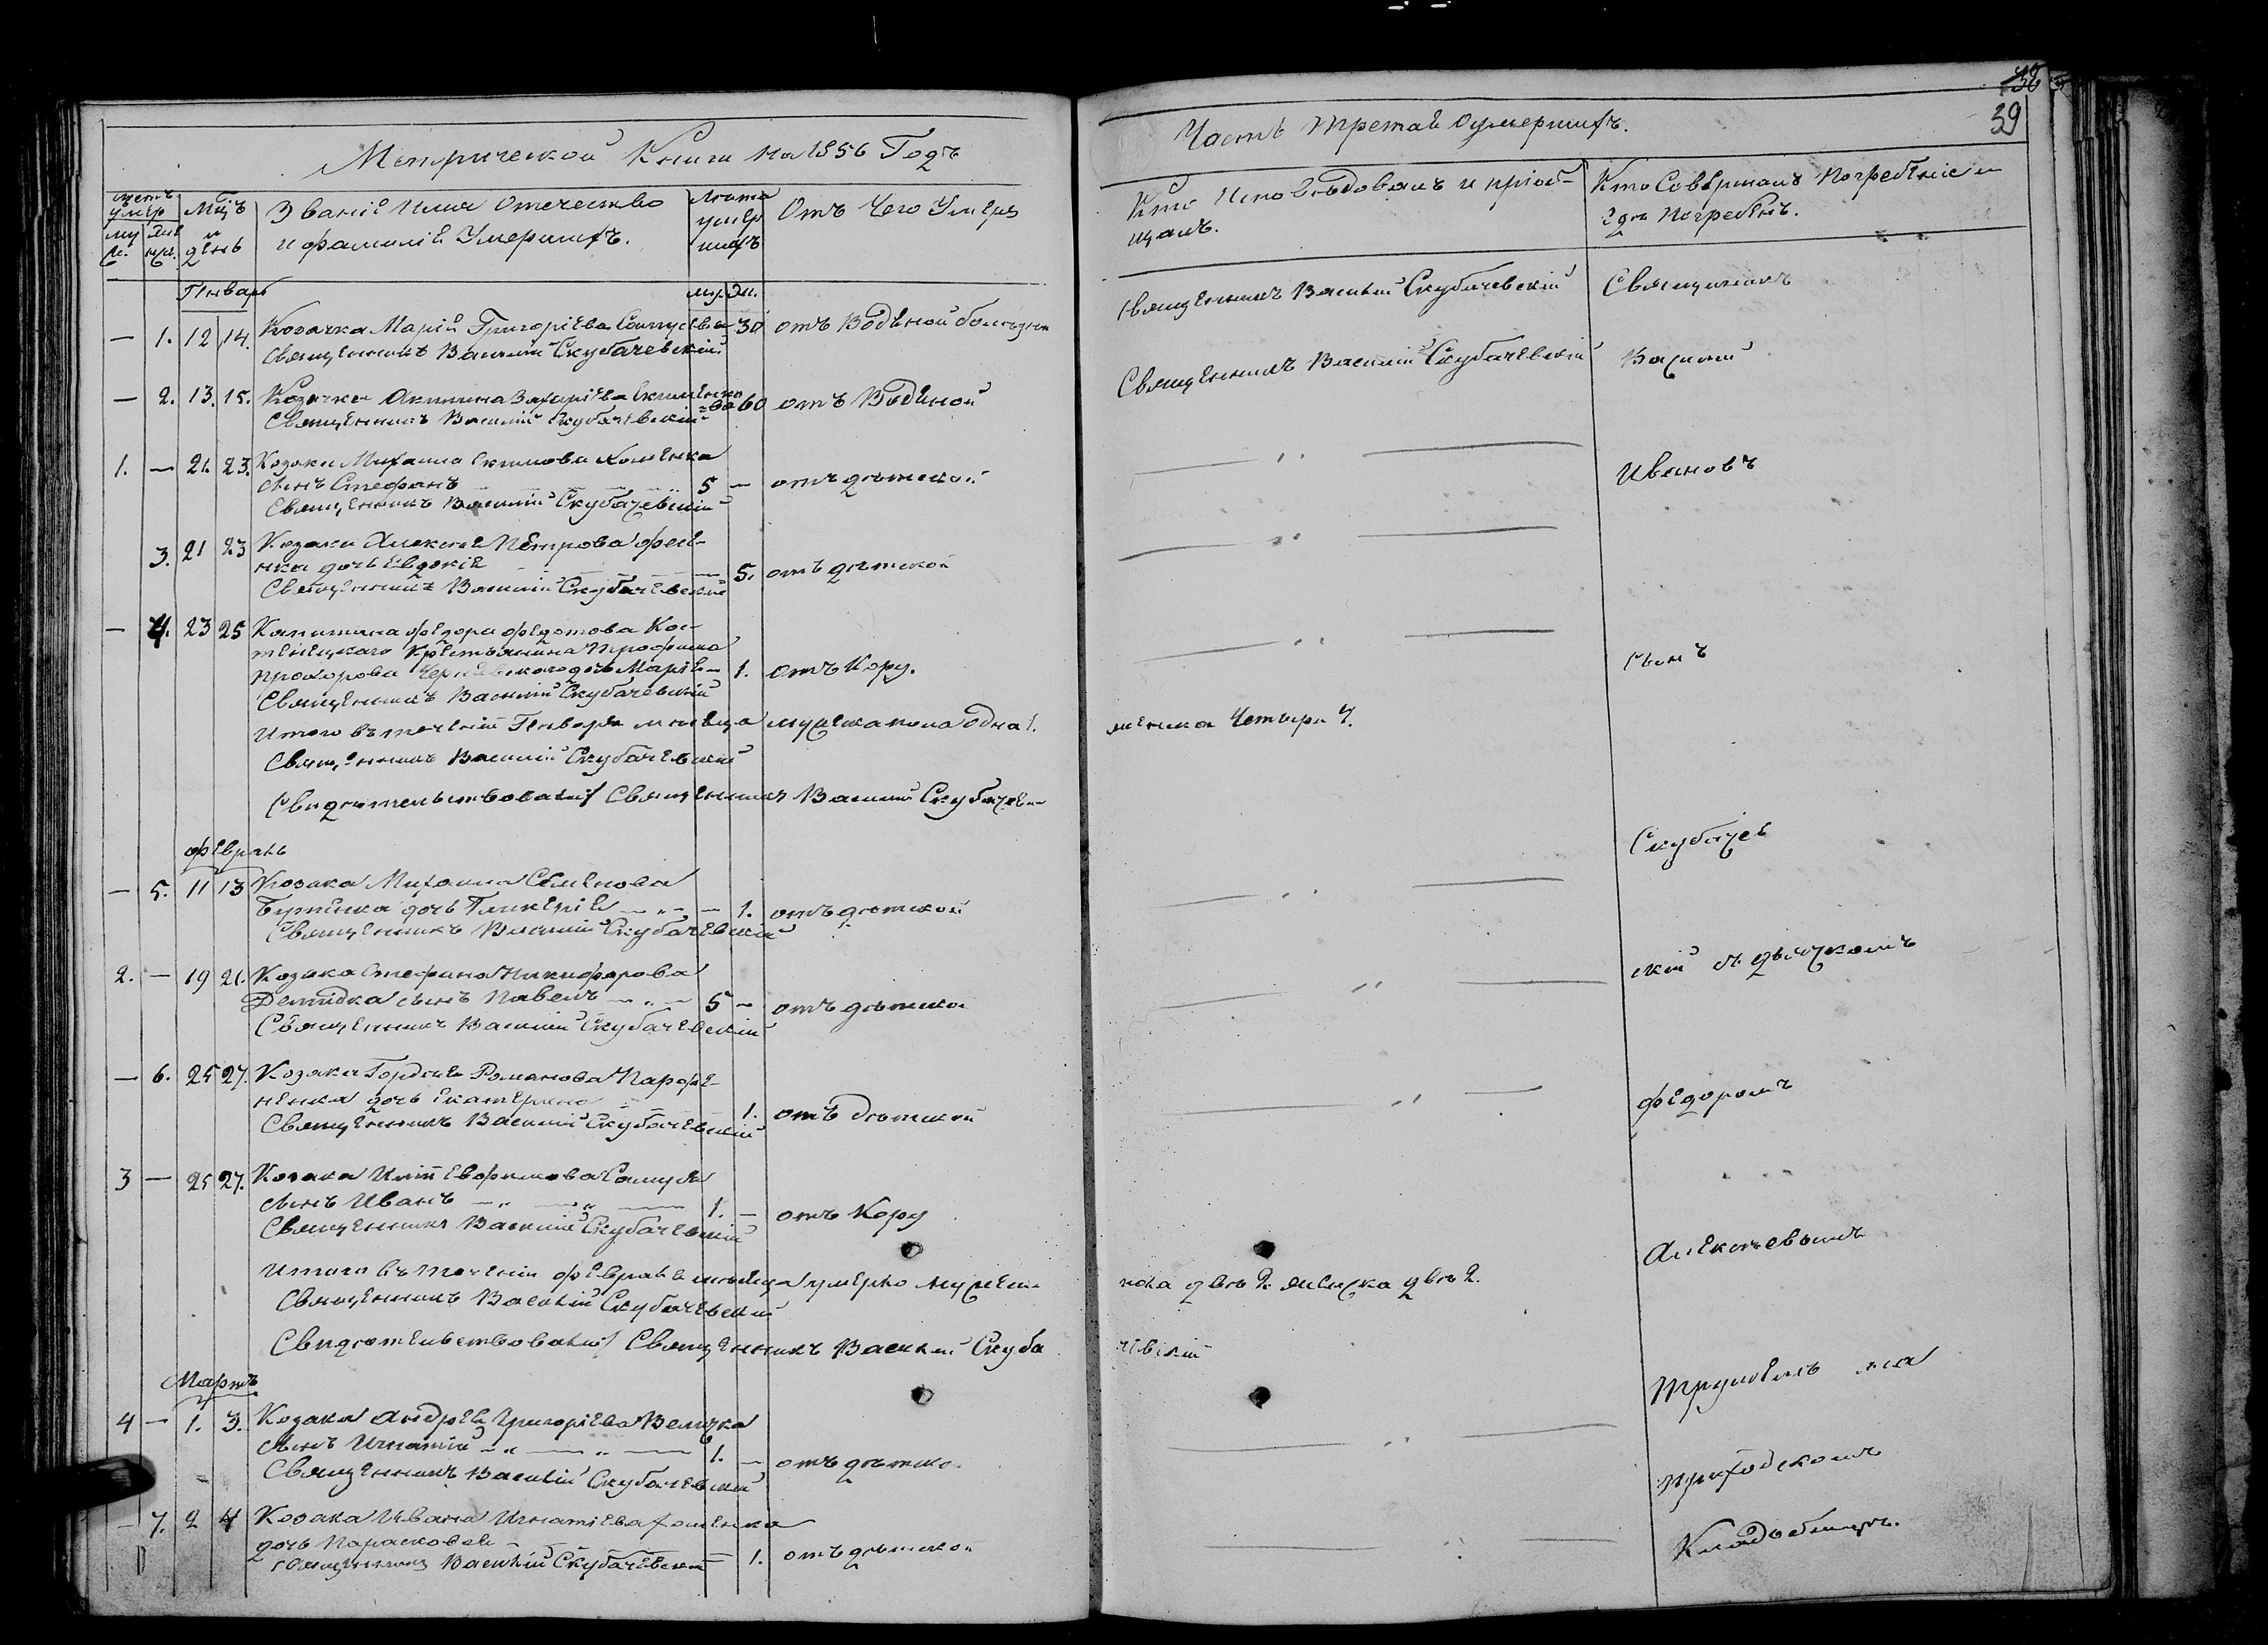 Метрической Книги на 1856 Годъ
Счетъ умер
му. же
Мцъ и день
Званіе Имя Отечество
и фамилія Умершихъ.
Лѣта умер шихъ
Отъ Чего Умеръ
Январь
му. жен.
— 1. 12 14. Козачка Марія Григоріева 30 отъ Водяной болѣзни
Священникъ Василій Скубачевскій
— 2. 13. 15. Козачка Акилина Захаріева 60 отъ Водяной
Священникъ Василій Скубачевскій
1. — 21. 23. Козака Михаила Екимова Хоменка
сынъ Стефанъ 5 — отъ дѣтской
Священникъ Василій Скубачевскій
3. 21 23 Козака Алексѣя Петрова Фе-
нка дочь Евдокія — 5. отъ дѣтской
Священникъ Василій Скубачевскій
— 4. 23 25 Капитана Федора Федотова Кос-
тенецкаго Крестьянина Трофима
Прохорова дочь Марія — 1. отъ Кору.
Священникъ Василій Скубачевскій
Итого въ теченіи Января мѣсяца мужеска пола Одна 1.
Священникъ Василій Скубачевскій
Свидѣтельствовалъ Священникъ Василій Скубачев
Февраль
— 5. 11 13 Козака Михаила Семенова
дочь Гликерія — 1. отъ дѣтской
Священникъ Василій Скубачевскій
2. — 19 21. Козака Стефана Никифорова
Демидка сынъ Павелъ 5 — отъ дѣтской
Священникъ Василій Скубачевскій
— 6. 25 27. Козака Гордѣя Романова Парфе-
ненка дочь Екатерина 1. отъ дѣтской
Священникъ Василій Скубачевскій
3 — 25 27. Козака Иліи Евфимова Самуся
сынъ Иванъ 1. — отъ Кору
Священникъ Василій Скубачевскій
Итого въ теченіи Февраля мѣсяца умерло мужеск
Священникъ Василій Скубачевскій
Свидѣтельствовалъ Священникъ Василій Скуба
Мартъ
4 — 1. 3. Козака Андрея Григоріева Величка
сынъ Игнатій 1. — отъ дѣтско
Священникъ Василій Скубачевскій
— 7. 2 4 Козака Ивана Игнатіева Хоменка
дочь Парасковея — 1. отъ дѣтской
Священникъ Василій Скубачевскій
Часть третая о умершихъ.
39
Кто Исповѣдовалъ и пріоб-
щалъ.
Кто Совершалъ Погребеніе и
гдѣ Погребенъ.
Священникъ Василій Скубачевскій
Священникъ
Священникъ Василій Скубачевскій
Василій
Ивановъ
сынъ
женска Четыри 4.
Скубачев
скій съ дьячкомъ
Федоромъ
Алексѣевымъ
пола двѣ 2. женска двѣ 2.
чевскій
на
приходскомъ
Кладбищѣ.